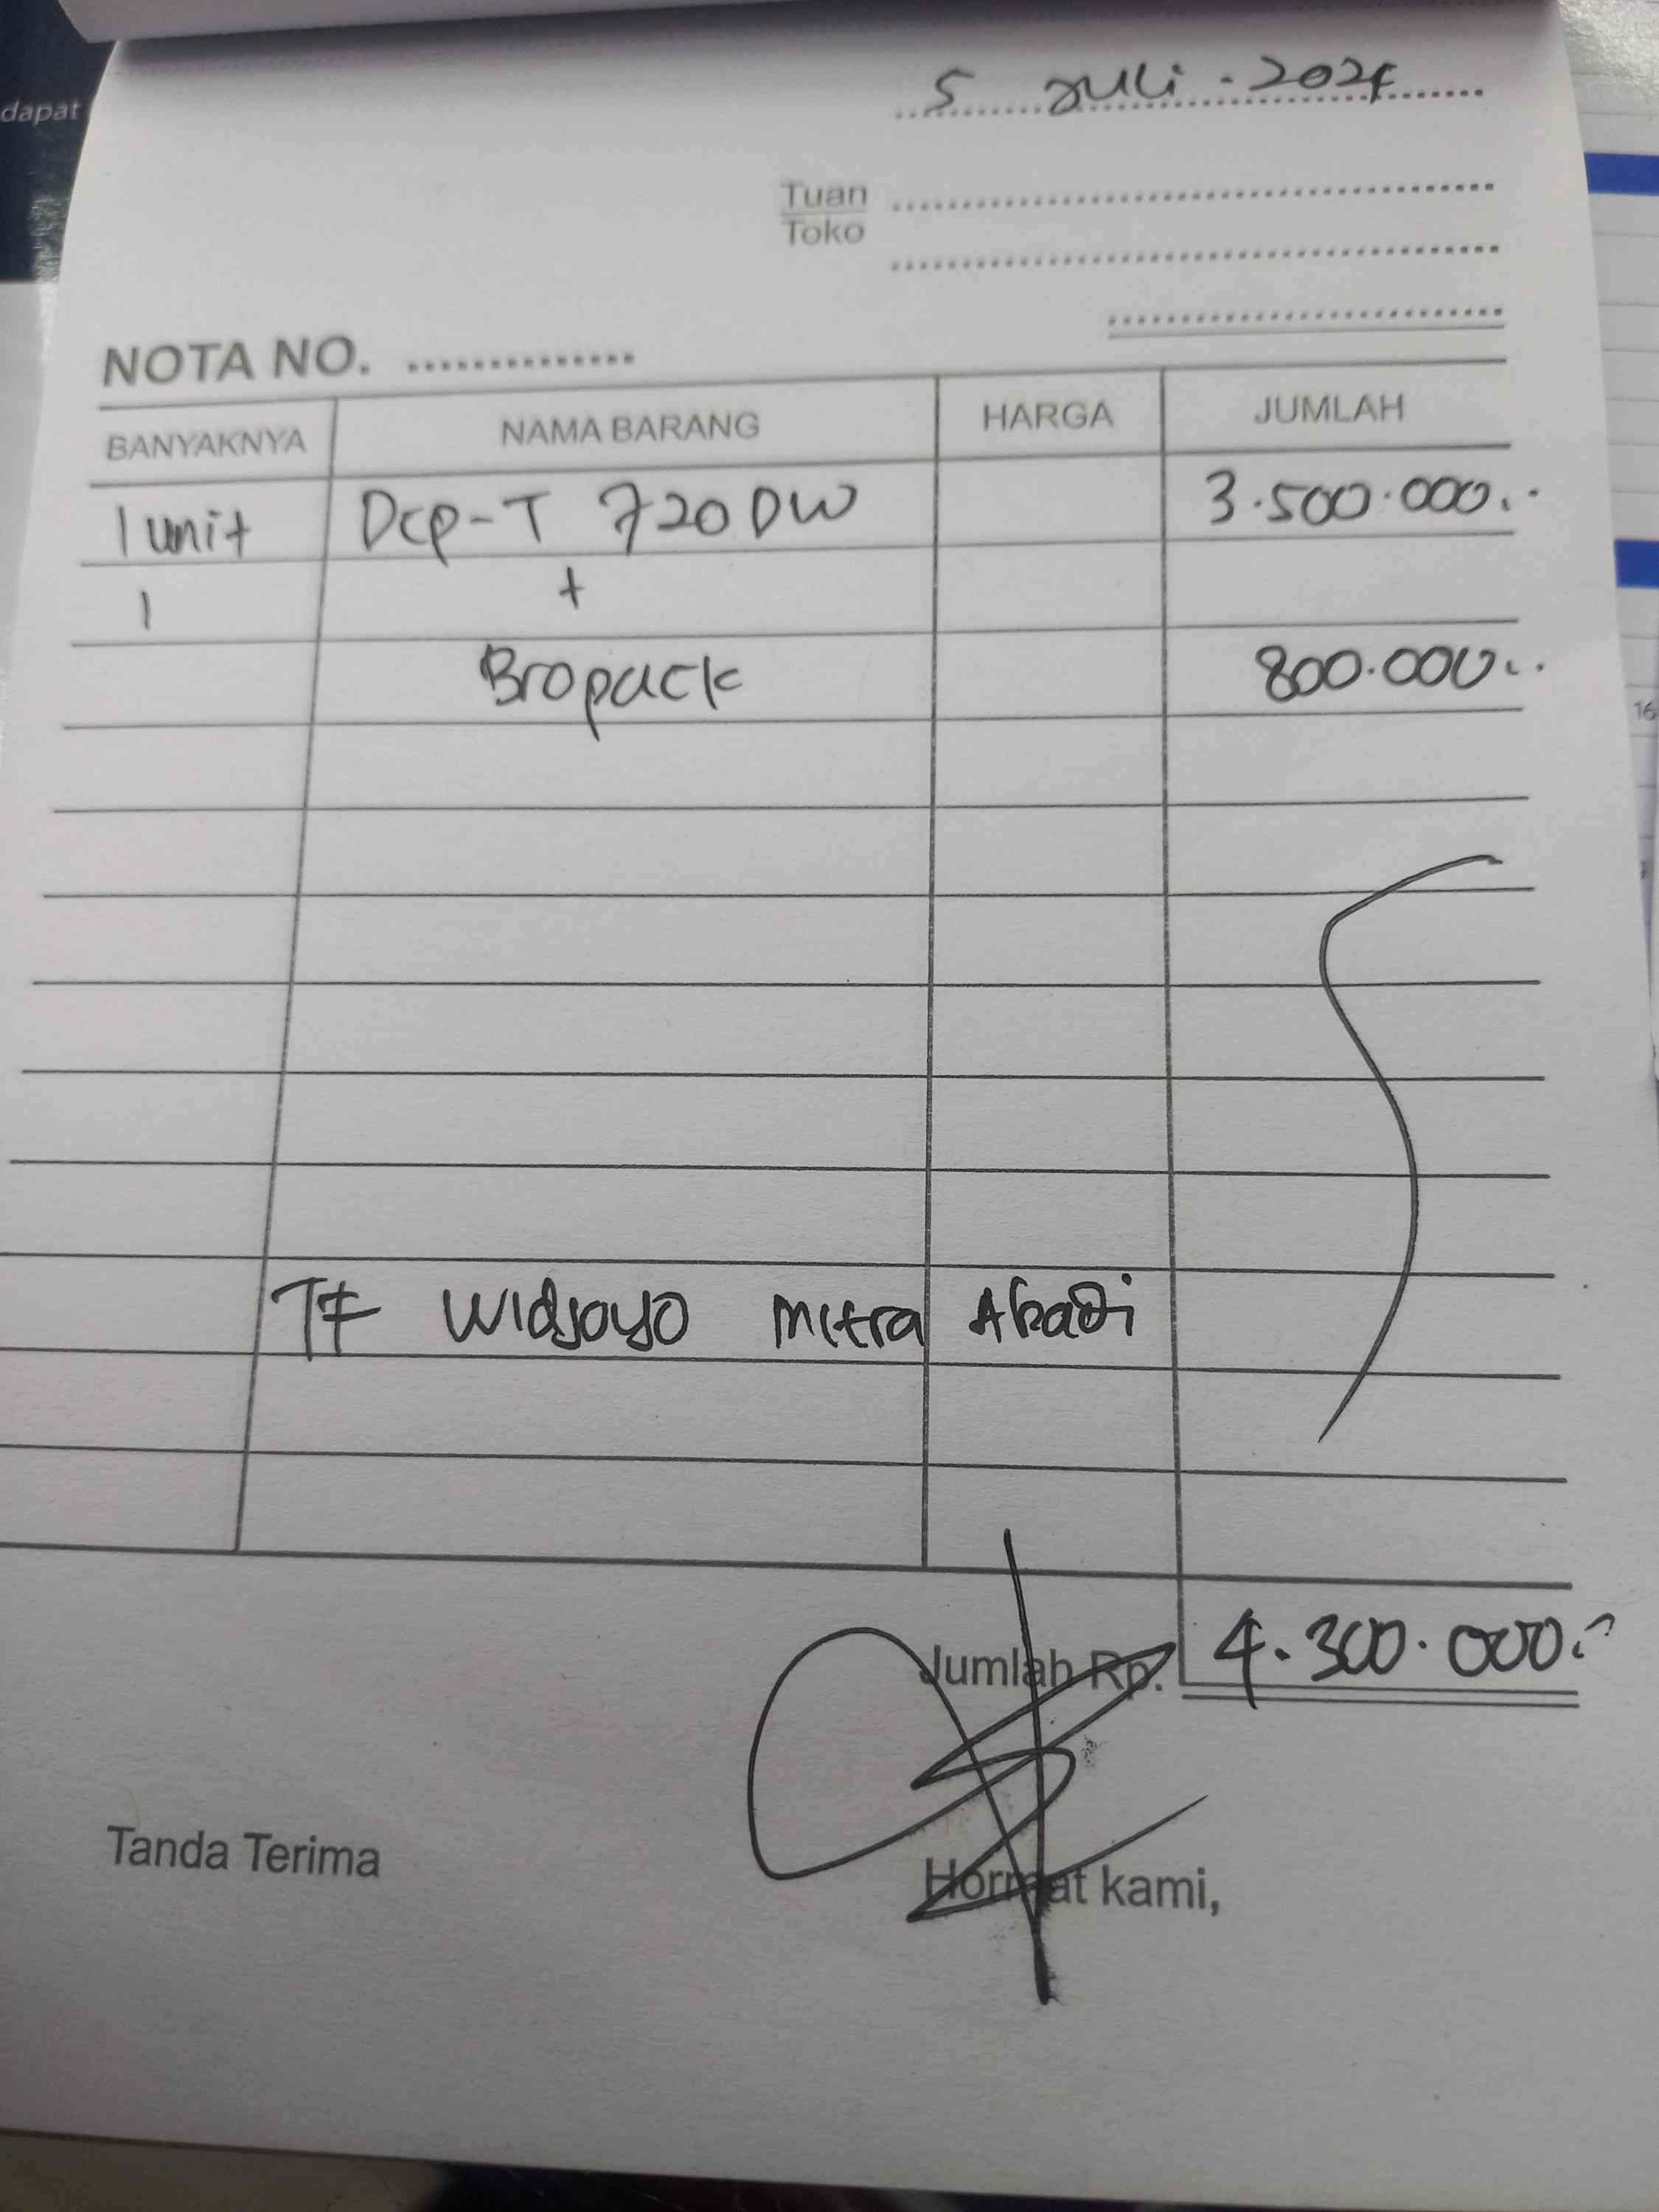 dapat
5 Juli - 2024
Tuan
Toko
NOTA NO. ..............
BANYAKNYA NAMA BARANG HARGA JUMLAH
1 unit Dcp-T 720DW 3.500.000.-
1 +
Bropack 800.000.-
16
TF Widjoyo Mitra Abadi
Jumlah Rp. 4.300.000.-
Tanda Terima Hormat kami,